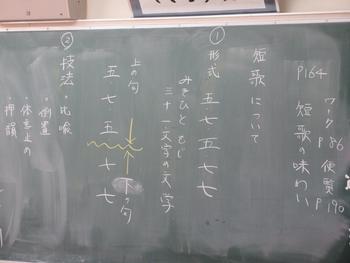 P164
ワークP86 便覧P190
短歌の味わい
短歌について
① 形式 五七五七七
みそひともじ
三十一文字の文学
上の句 下の句
五七五七七
② 技法・比喩
・倒置
・体言止め
・押韻